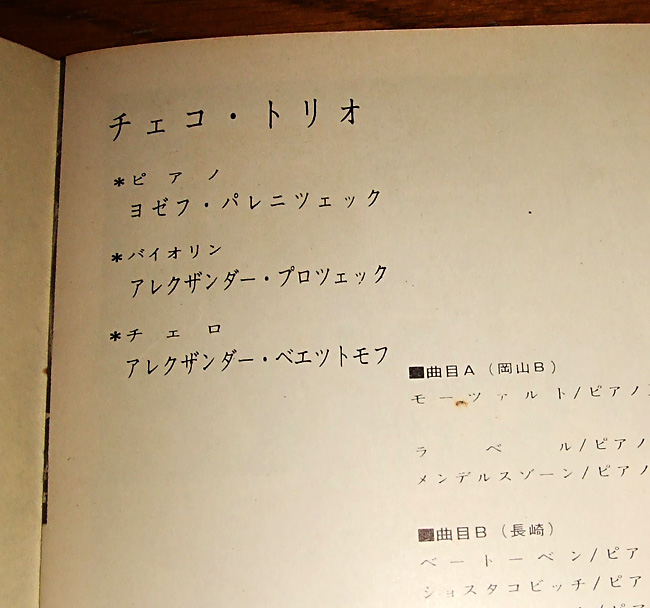 チェコ・トリオ
*ピアノ
ヨゼフ・パレニツェック
*バイオリン
アレクザンダー・プロツェック
*チェロ
アレクザンダー・ベエツトモフ
■曲目A(岡山B)
モーツァルト/ピアノ
ラベル/ピアノ
メンデルスゾーン/ピアノ
■曲目B(長崎)
ベートーベン/ピア
ショスタコビッチ/ピア